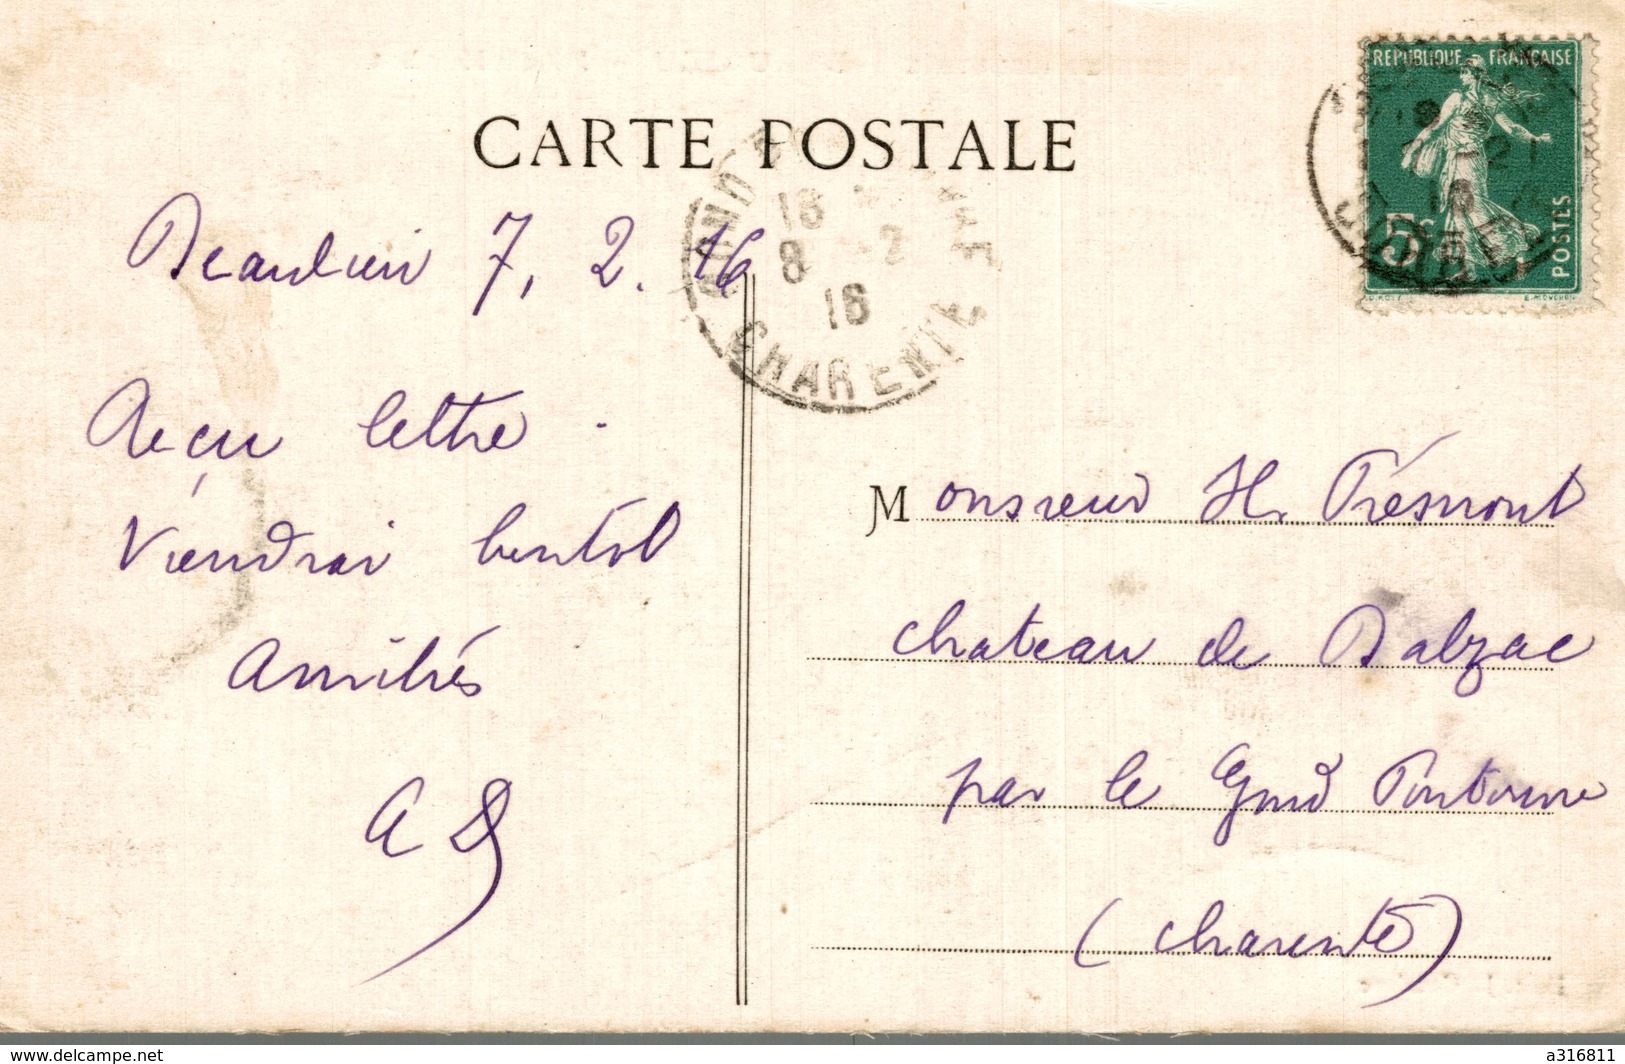 CARTE POSTALE
REPUBLIQUE FRANCAISE
5c
POSTES
18
8 -2
16
CHARENTE
Beaulieu 7, 2. 16
Reçu lettre.
Viendrai bentôt
Amitiés
A D
Monsieur H. Trésmont
chateau de Balzac
par le Gond Pontouvre
(Charente)
www.delcampe.net
a316811